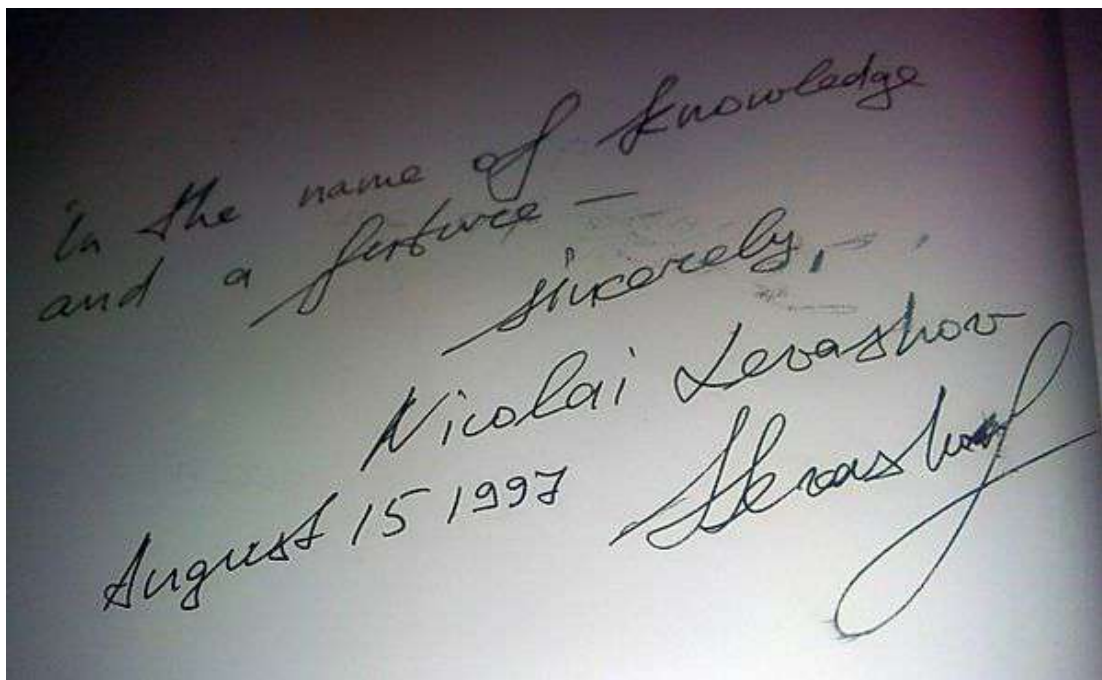 in the name of knowledge
and a future –
sincerely,
Nicolai Levashov
August 15 1997 Levashov